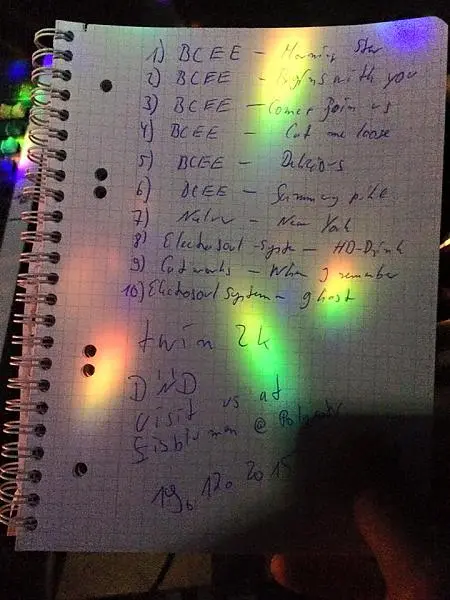 1) BCEE - Morning Star
2) BCEE - Begins with you
3) BCEE - Come join us
4) BCEE - Cut me loose
5) BCEE -
6) BCEE -
7) - New York
8) Electrosoul-System - HD-
9) Cutworks - When I remember
10) Electrosoul System - ghost
twin 2k
DND
visit us at
@
19. 12. 2015